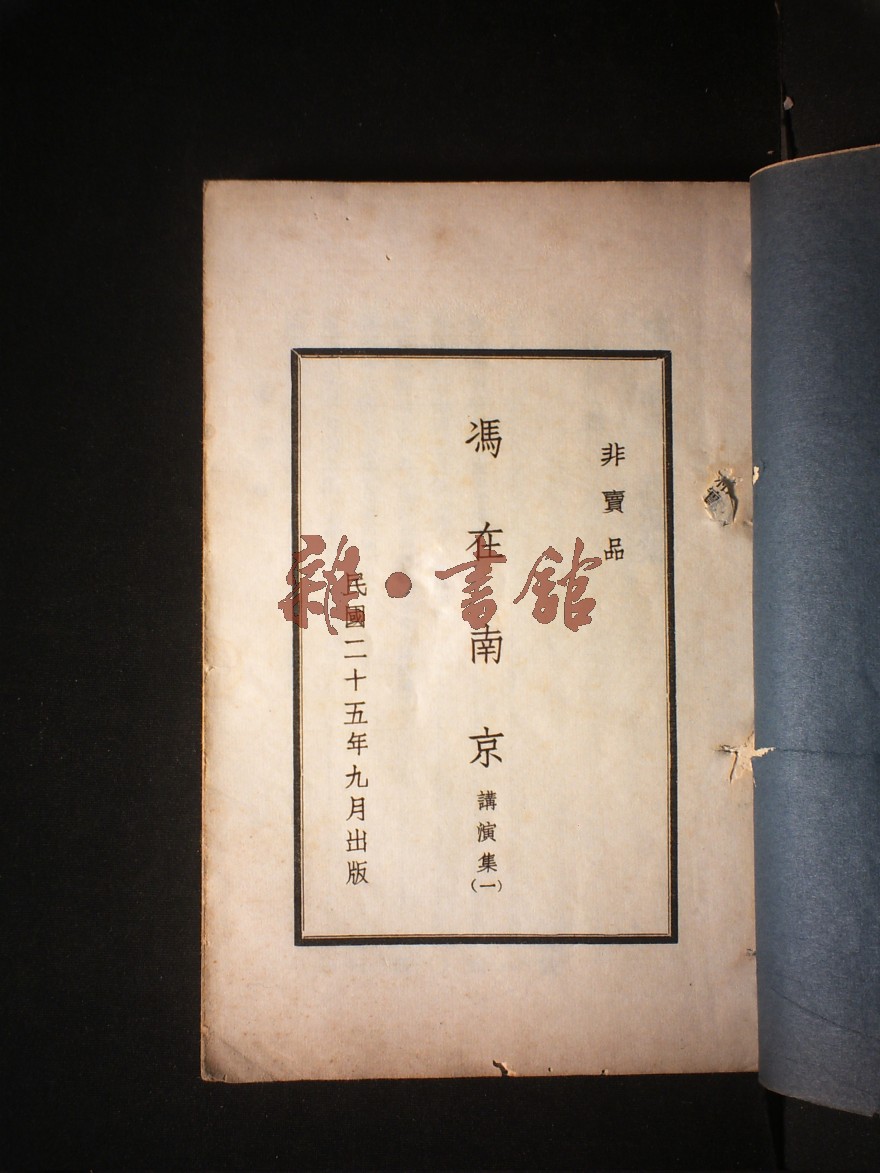 非賣品
馮在南京講演集(一)
民國二十五年九月出版
雜·書館